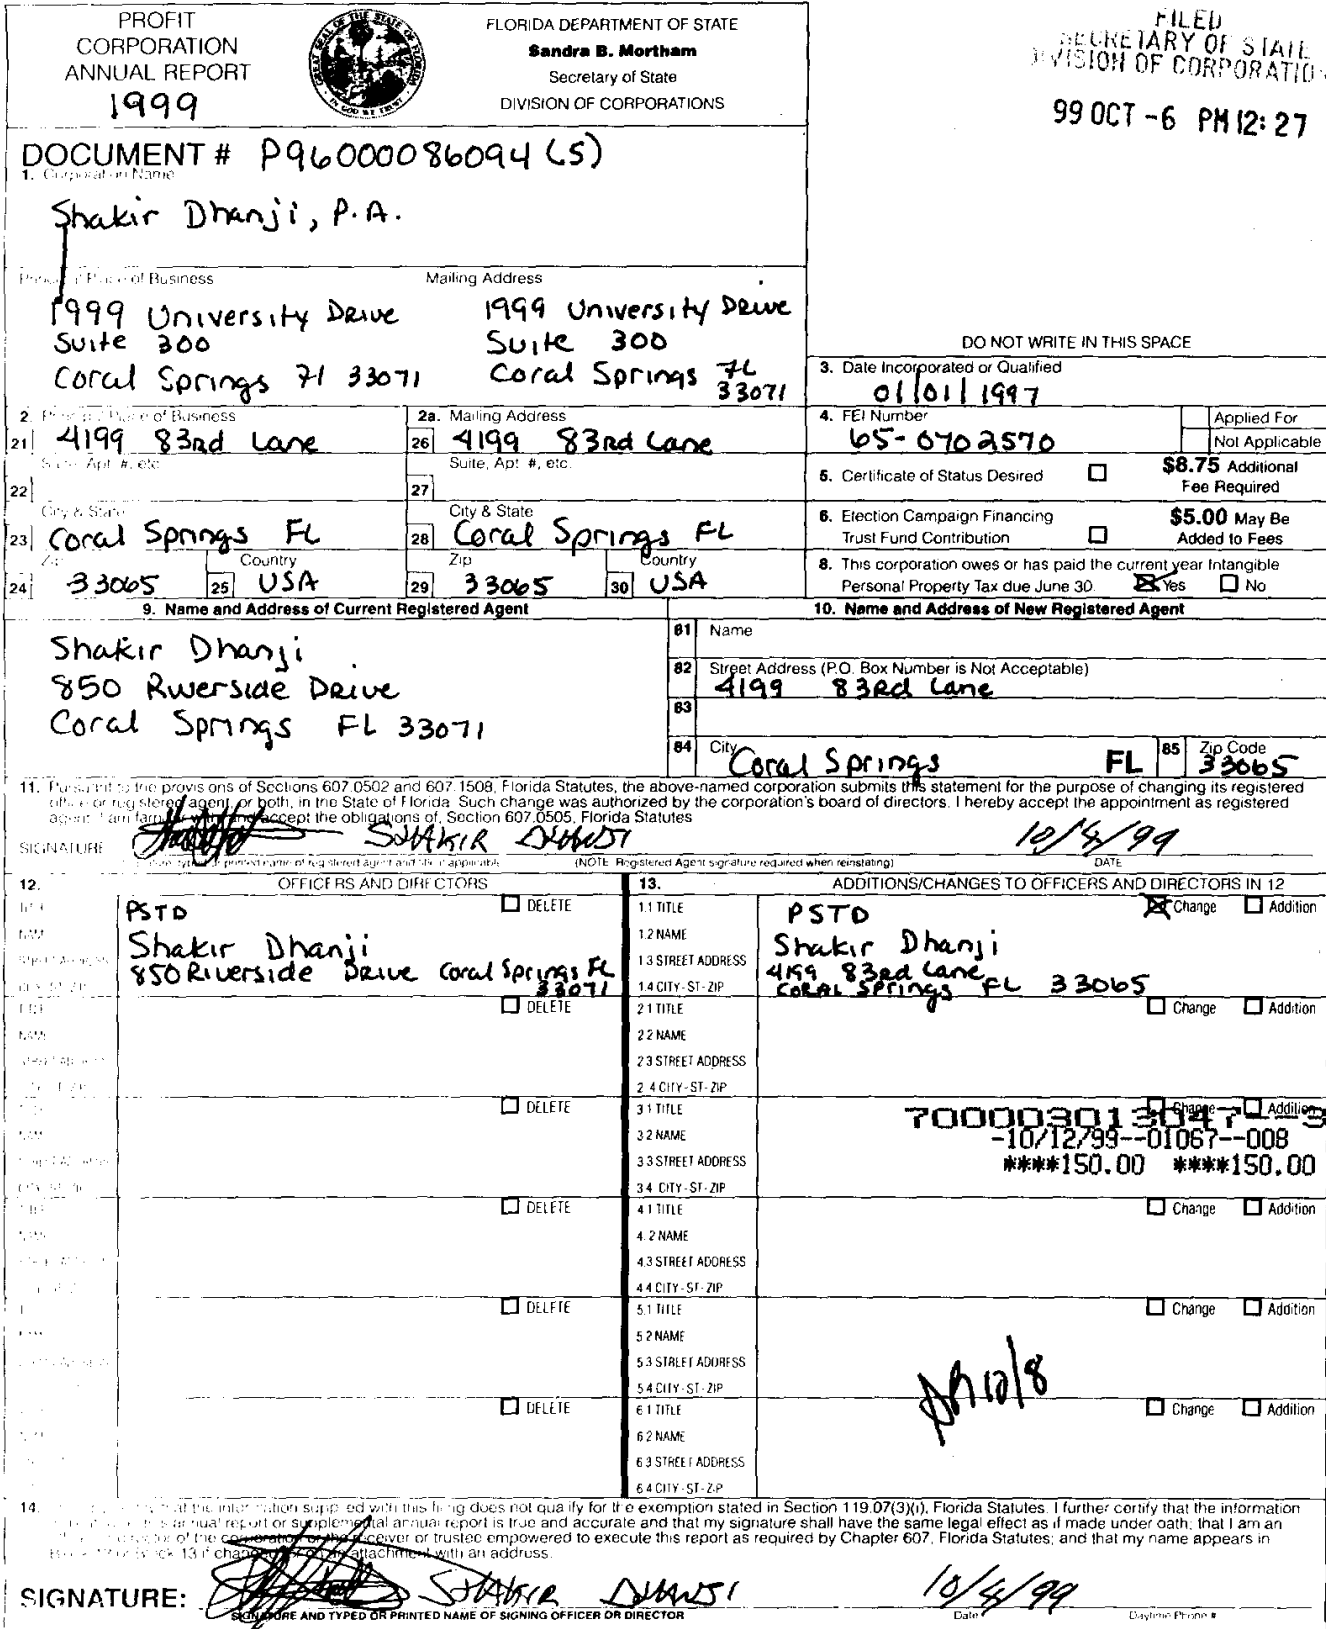 PROFIT
CORPORATION
ANNUAL REPORT
1999
GREAT SEAL OF THE STATE OF FLORIDA
IN GOD WE TRUST
FLORIDA DEPARTMENT OF STATE
Sandra B. Mortham
Secretary of State
DIVISION OF CORPORATIONS
FILED
SECRETARY OF STATE
DIVISION OF CORPORATION
99 OCT -6 PM 12:27
DOCUMENT # P96000086094 (5)
1. Corporation Name
Shakir Dhanji, P.A.
Principal Place of Business
1999 University Drive
Suite 300
Coral Springs Fl 33071
Mailing Address
1999 University Drive
Suite 300
Coral Springs FL
33071
DO NOT WRITE IN THIS SPACE
3. Date Incorporated or Qualified
01/01/1997
2. Principal Place of Business
21 4199 83rd Lane
2a. Mailing Address
26 4199 83rd Lane
4. FEI Number
65-0702570
Applied For
Not Applicable
Suite, Apt. #, etc.
22
Suite, Apt. #, etc.
27
5. Certificate of Status Desired
$8.75 Additional
Fee Required
City & State
23 Coral Springs FL
City & State
28 Coral Springs FL
6. Election Campaign Financing
Trust Fund Contribution
$5.00 May Be
Added to Fees
Zip
24 33065
Country
25 USA
Zip
29 33065
Country
30 USA
8. This corporation owes or has paid the current year Intangible
Personal Property Tax due June 30. Yes No
9. Name and Address of Current Registered Agent
Shakir Dhanji
850 Riverside Drive
Coral Springs FL 33071
10. Name and Address of New Registered Agent
81 Name
82 Street Address (P.O. Box Number is Not Acceptable)
4199 83rd Lane
83
84 City Coral Springs FL
85 Zip Code
33065
11. Pursuant to the provisions of Sections 607.0502 and 607.1508, Florida Statutes, the above-named corporation submits this statement for the purpose of changing its registered
office or registered agent, or both, in the State of Florida. Such change was authorized by the corporation's board of directors. I hereby accept the appointment as registered
agent. I am familiar with, and accept the obligations of, Section 607.0505, Florida Statutes
SIGNATURE SHAKIR DHANJI 10/4/99
printed name of registered agent and title if applicable (NOTE: Registered Agent signature required when reinstating) DATE
12. OFFICERS AND DIRECTORS
13. ADDITIONS/CHANGES TO OFFICERS AND DIRECTORS IN 12
TITLE PSTD DELETE
NAME Shakir Dhanji
STREET ADDRESS 850 Riverside Drive Coral Springs FL
CITY-ST-ZIP 33071
1.1 TITLE PSTD Change Addition
1.2 NAME Shakir Dhanji
1.3 STREET ADDRESS 4199 83rd Lane
1.4 CITY-ST-ZIP CORAL Springs FL 33065
TITLE DELETE
NAME
2.1 TITLE Change Addition
2.2 NAME
2.3 STREET ADDRESS
2.4 CITY-ST-ZIP
DELETE
3.1 TITLE Change Addition
3.2 NAME
3.3 STREET ADDRESS
3.4 CITY-ST-ZIP
700003013047--3
-10/12/99--01067--008
****150.00 ****150.00
DELETE
4.1 TITLE Change Addition
4.2 NAME
4.3 STREET ADDRESS
4.4 CITY-ST-ZIP
DELETE
5.1 TITLE Change Addition
5.2 NAME
5.3 STREET ADDRESS
5.4 CITY-ST-ZIP
10/8
DELETE
6.1 TITLE Change Addition
6.2 NAME
6.3 STREET ADDRESS
6.4 CITY-ST-ZIP
14. that the information supplied with this filing does not qualify for the exemption stated in Section 119.07(3)(i), Florida Statutes. I further certify that the information
annual report or supplemental annual report is true and accurate and that my signature shall have the same legal effect as if made under oath; that I am an
director of the corporation or the receiver or trustee empowered to execute this report as required by Chapter 607, Florida Statutes; and that my name appears in
Block 12 or Block 13 if changed, or on an attachment with an address.
SIGNATURE: SHAKIR DHANJI 10/4/99
SIGNATURE AND TYPED OR PRINTED NAME OF SIGNING OFFICER OR DIRECTOR Date Daytime Phone #